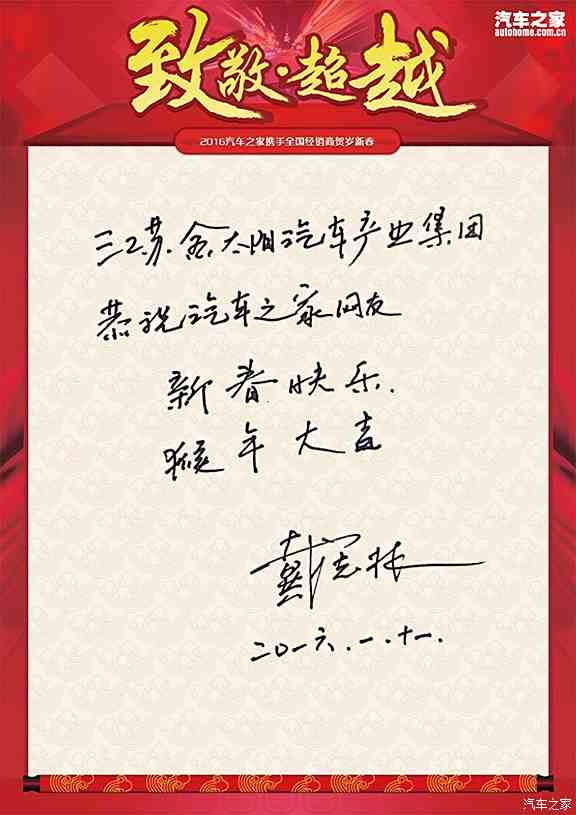 汽车之家
autohome.com.cn
致敬·超越
2016汽车之家携手全国经销商贺岁新春
江苏金太阳汽车产业集团
恭祝汽车之家网友
新春快乐.
猴年大吉
戴
二〇一六.一.十一.
汽车之家